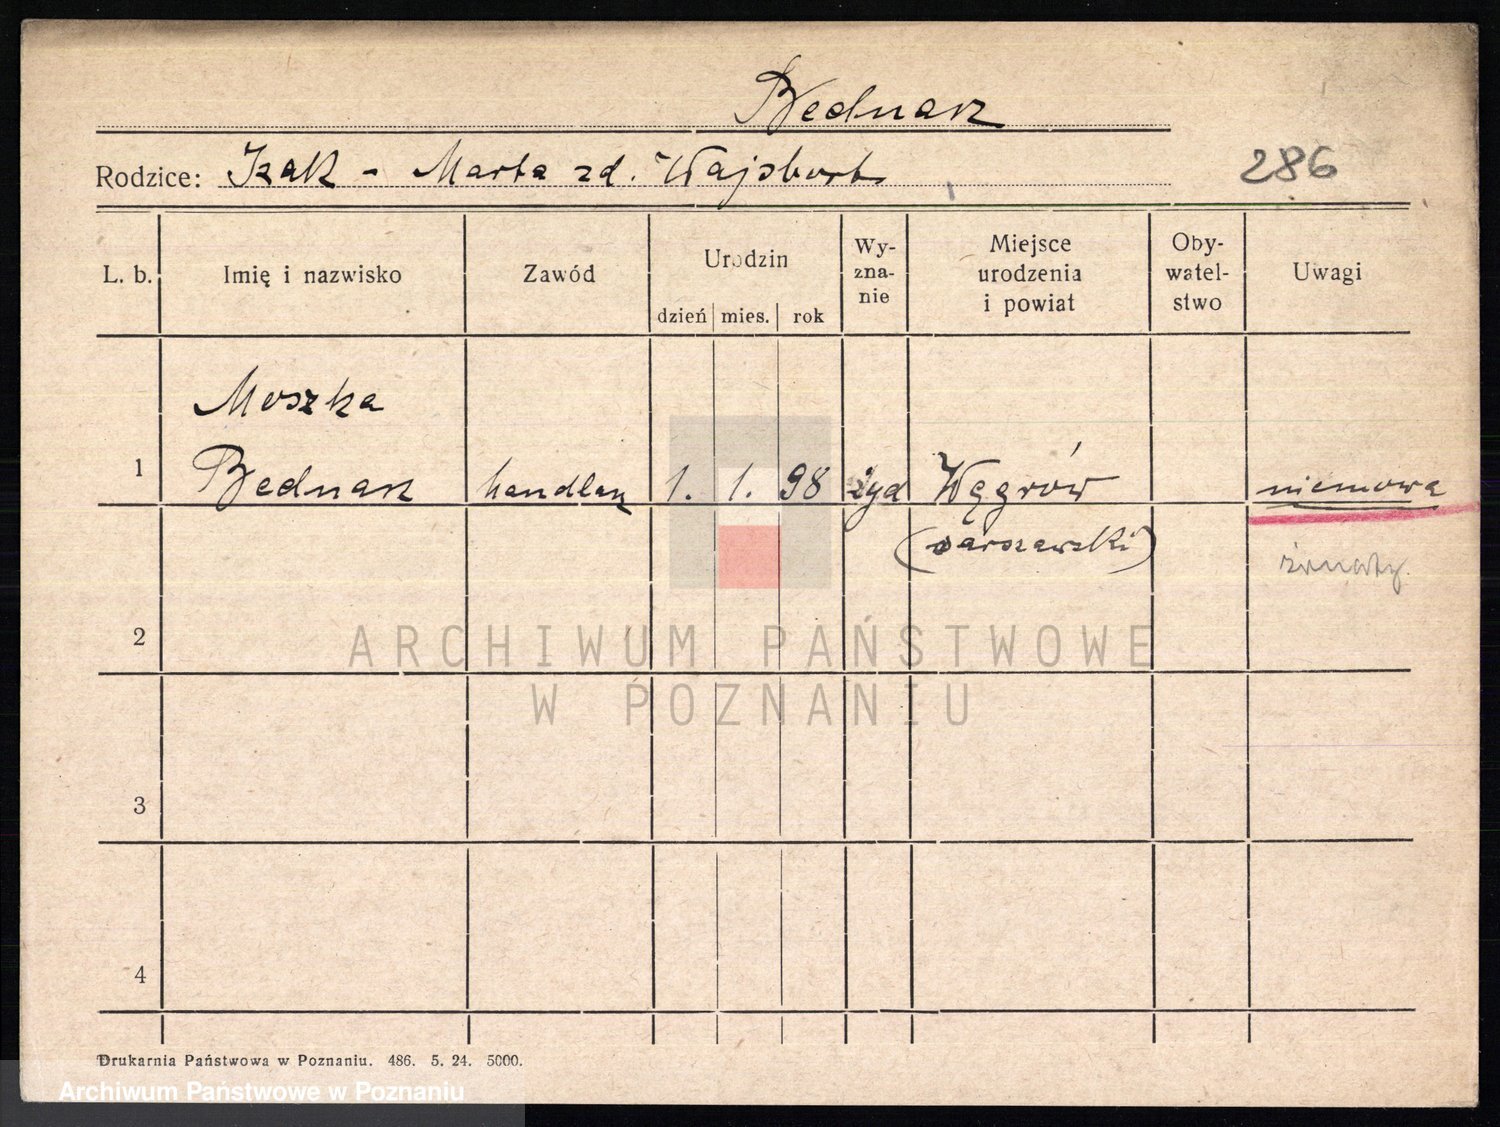 Bednarz
Rodzice: Izak - Marta zd. Wajsbort
286
L. b.
Imię i nazwisko
Zawód
Urodzin
dzień mies. rok
Wy-
zna-
nie
Miejsce
urodzenia
i powiat
Oby-
watel-
stwo
Uwagi
Moszka
1 Bednarz handlarz 1. 1. 98 żyd Węgrów niemowa
(warszawski)
żonaty.
2
ARCHIWUM PAŃSTWOWE
W POZNANIU
3
4
Drukarnia Państwowa w Poznaniu. 486. 5. 24. 5000.
Archiwum Państwowe w Poznaniu